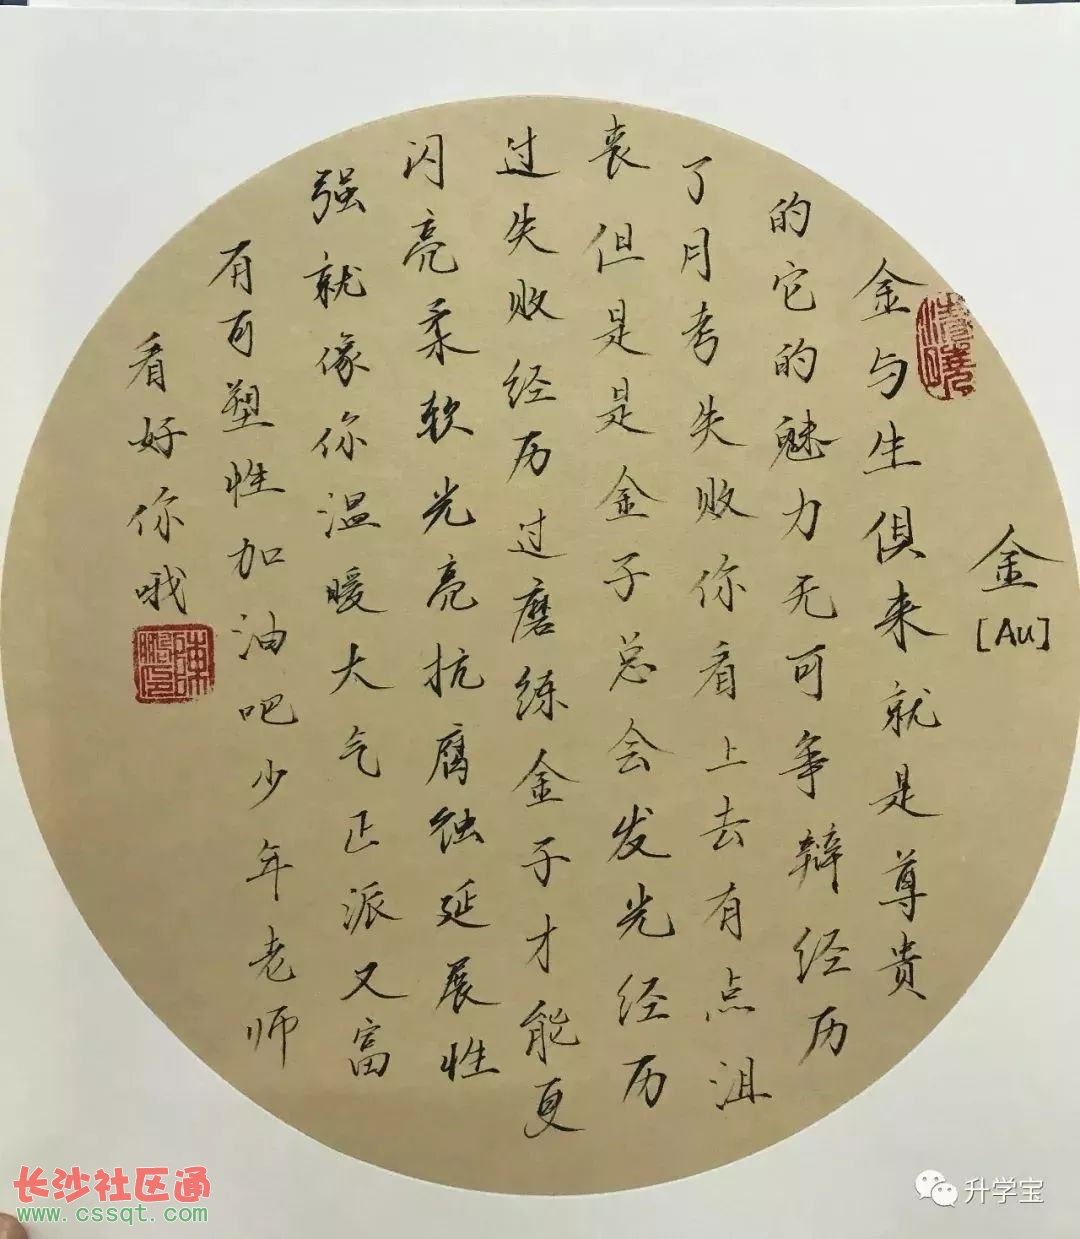 金
[Au]
金与生俱来就是尊贵
的它的魅力无可争辩经历
了月考失败你看上去有点沮
丧但是是金子总会发光经历
过失败经历过磨练金子才能更
闪亮柔软光亮抗腐蚀延展性
强就像你温暖大气正派又富
有可塑性加油吧少年老师
看好你哦
长沙社区通
www.cssqt.com
升学宝